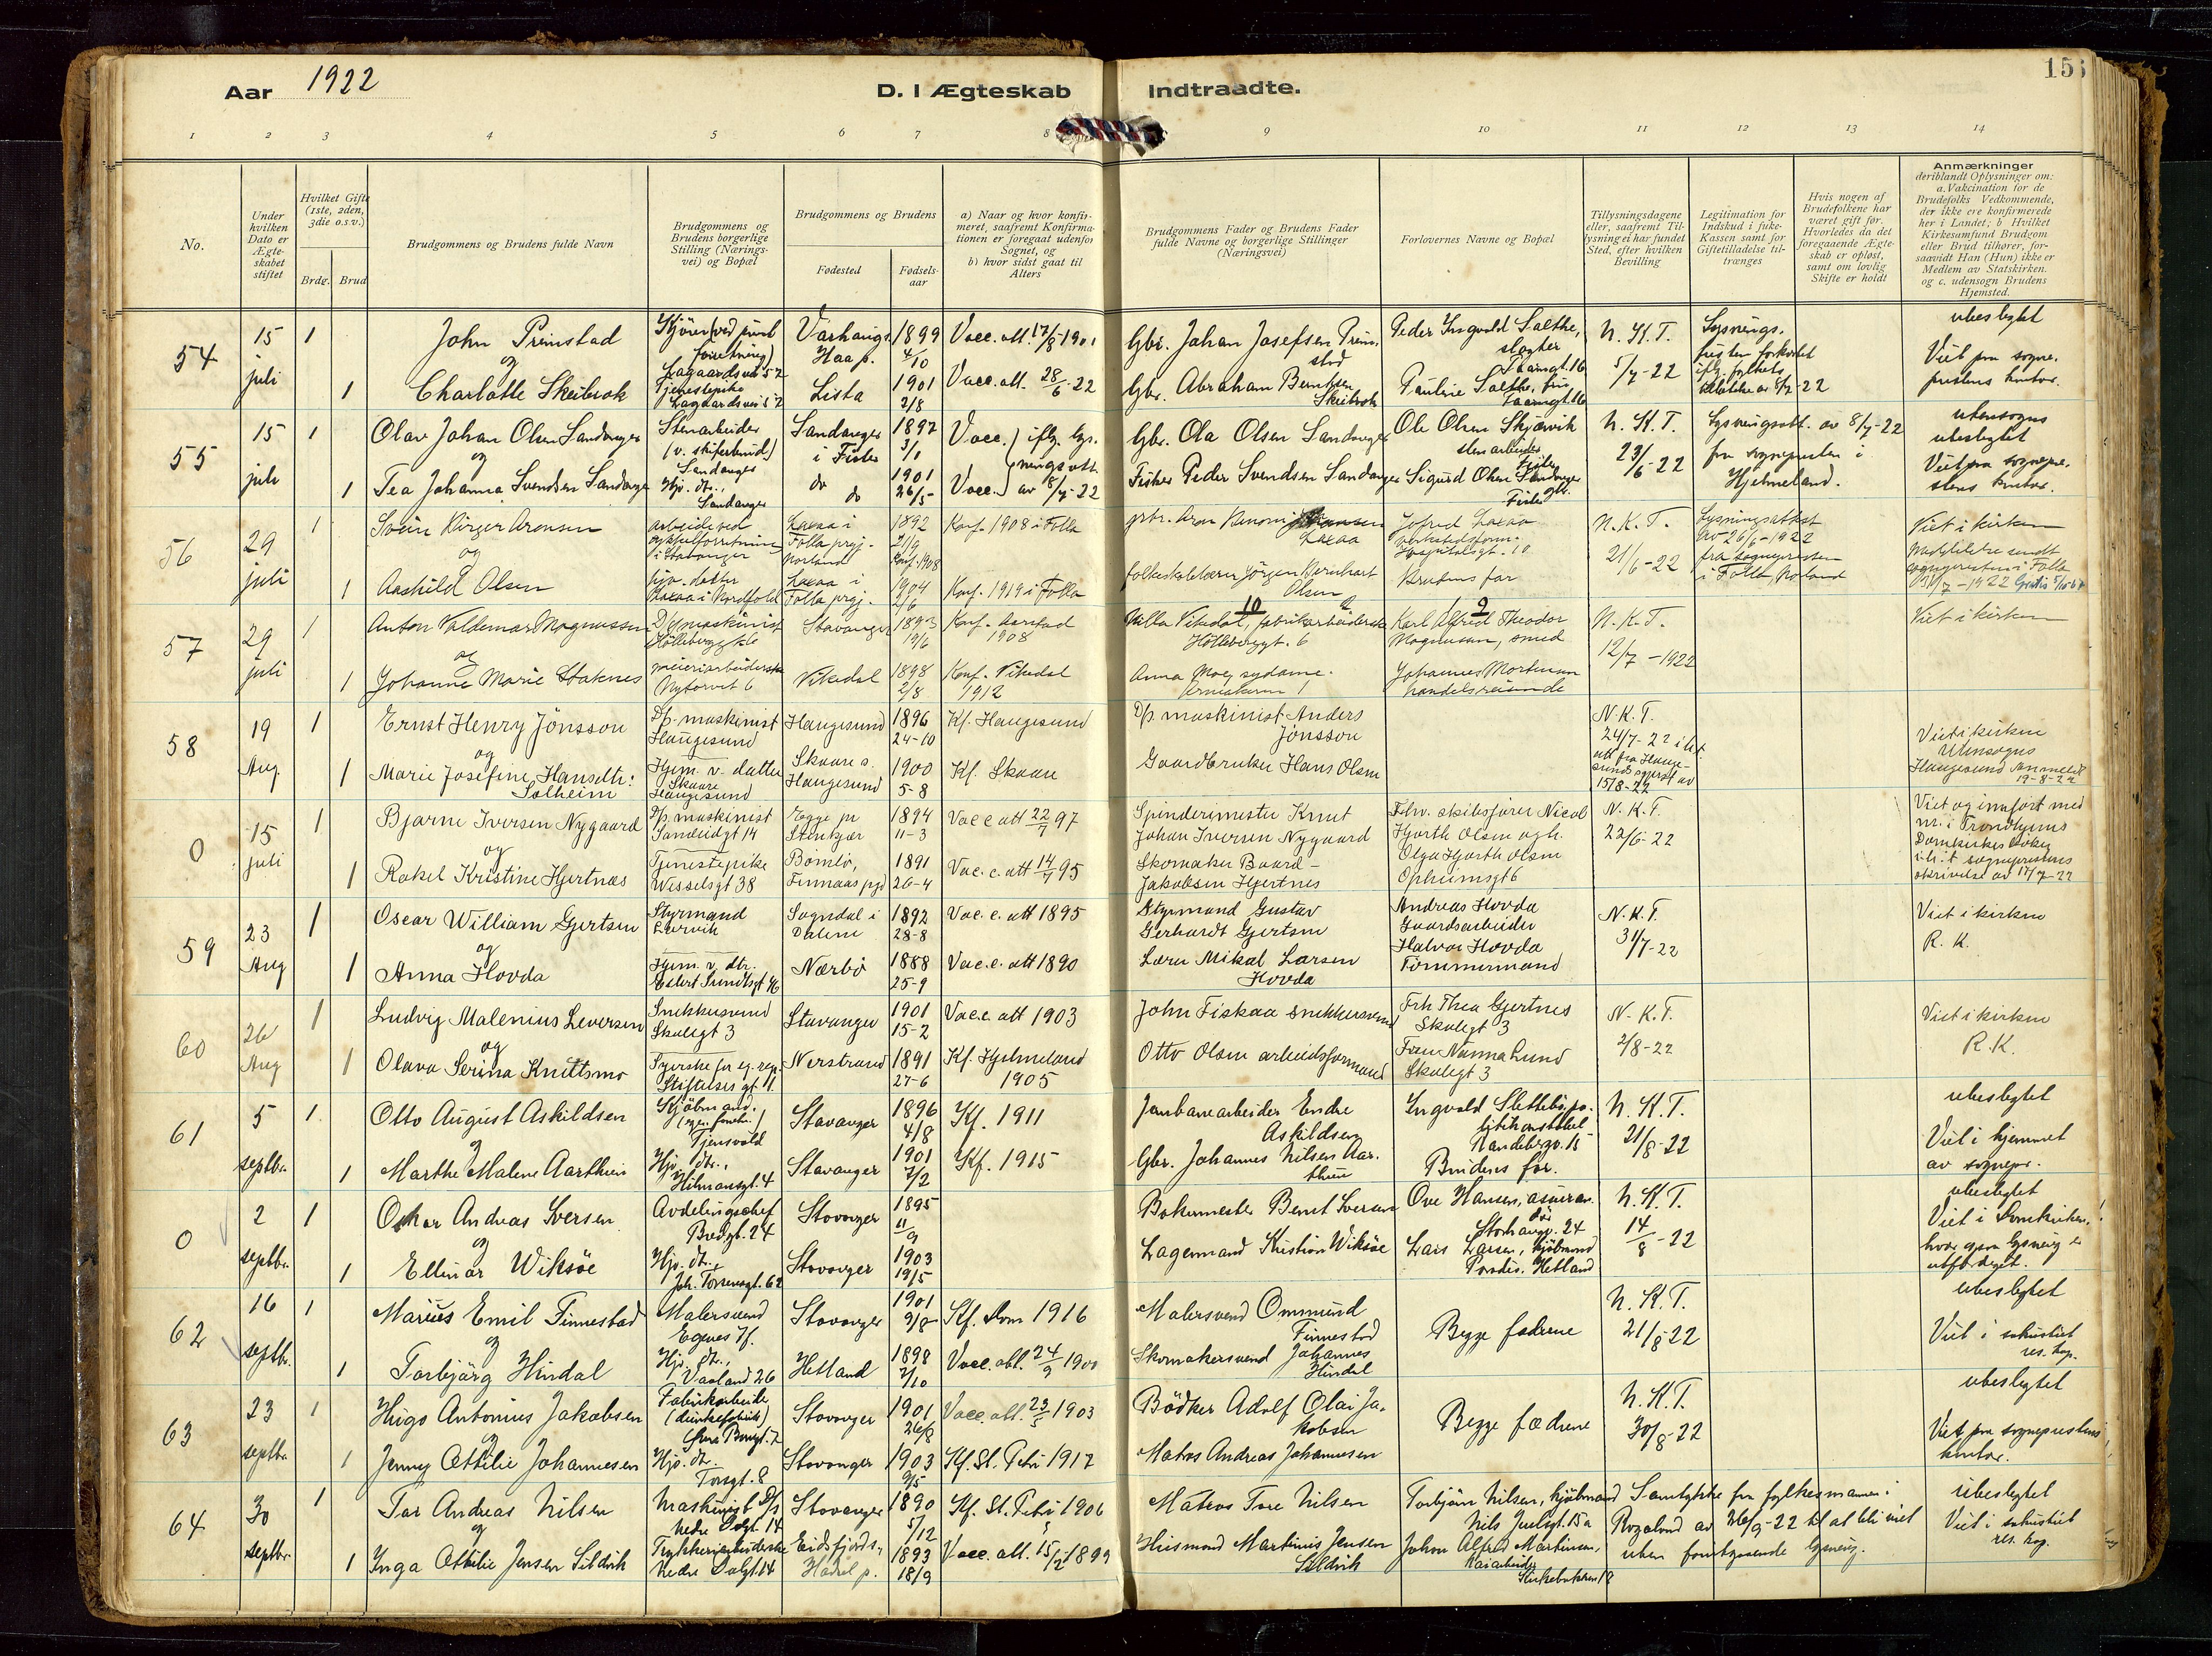 Aar 1922
D. I Ægteskab Indtraadte.
1 2 3 4 5 6 7 8 9 10 11 12 13 14
No.
Under hvilken Dato er Ægteskabet stiftet
Hvilket Gifte (1ste, 2den, 3die o.s.v.)
Brdg. Brud
Brudgommens og Brudens fulde Navn
Brudgommens og Brudens borgerlige Stilling (Næringsvei) og Bopæl
Brudgommens og Brudens
Fødested
Fødselsaar
a) Naar og hvor konfirmeret, saafremt Konfirmationen er foregaat udenfor Sognet, og
b) hvor sidst gaat til Alters
Brudgommens Fader og Brudens Fader fulde Navne og borgerlige Stillinger (Næringsvei)
Forlovernes Navne og Bopæl
Tillysningsdagene eller, saafremt Tillysning ei har fundet Sted, efter hvilken Bevilling
Legitimation for Indskud i Enke-Kassen samt for Giftetilladelse tiltrænges
Hvis nogen af Brudefolkene har været gift før. Hvorledes da det foregaaende Ægteskab er opløst, samt om lovlig Skifte er holdt
Anmærkninger
deriblandt Oplysninger om: a. Vakcination for de Brudefolks Vedkommende, der ikke ere konfirmerede her i Landet; b Hvilket Kirkesamfund Brudgom eller Brud tilhører, forsaavidt Han (Hun) ikke er Medlem av Statskirken. og c. udensogn Brudens Hjemsted.
54 15 juli 1 John Primstad Varhaug Haa p. 1899 4/10 Vacc. att. 17/8 1901
og
1 Charlotte Skeibrok Tjenestepike Lagaardsvei 52 Lista 1901 2/8 Vacc. att. 28/6-22
Gbr. Johan Josefsen Primstad Peder Ingvald Salthe, slagter N. K. T. 5/7-22 ubeslegtet
Gbr. Abraham Berntsen Skeibrok Pauline Salthe, fru Viet paa sogneprestens kontor.
55 15 juli 1 Olav Johan Olsen Sandanger Stenarbeider Sandanger Sandanger i Fister 1897 3/1 Vacc. iflg. lysningsatt. av 8/7-22
og
1 Tea Johanna Svendsen Sandanger Hjv. dtr., Sandanger do do 1901 26/5 Vacc.
Gbr. Ola Olsen Sandanger Ole Olsen Skjørvik stenarbeider Fister N. K. T. 23/6-22 Lysningsatt. av 8/7-22 fra sognepresten i Hjelmeland. utensogns ubeslegtet
Fisker Peder Svendsen Sandanger Sigurd Olsen Sandanger gbr. Fister Viet paa sogneprestens kontor.
56 29 juli 1 Svein Birger Aronsen arbeide ved Stavanger Laxaa i Folla prgj. Norland 1892 21/9 Konf. 1908 i Folla
og
1 Aashild Olsen hjv. datter Laxaa i Nordfold Laxaa i Folla prgj. 1904 2/6 Konf. 1919 i Folla
Laxaa Jofred Laxaa Hospitalsgt. 10 N. K. T. 21/6-22 Lysningsattest av 26/6-1922 fra sognepresten i Folla, Norland Viet i kirken
folkeskolelærer Jørgen Bernhart Olsen Brudens far
57 29 juli 1 Anton Valdemar Magnussen D/s maskinist Stavanger 1893 19/6 Konf. 1908
og
1 Johanne Marie Staknes meieriarbeiderske Nytorvet 6 Vikedal 1898 2/8 Konf. Vikedal 1912
10 9
Milla Vikedal, fabrikarbeiderske Karl Alfred Theodor Magnussen, smed N. K. T. 12/7-1922 Viet i kirken
Anna Moe, sydame. Johannes Mortensen handelsreisende
58 19 Aug. 1 Ernst Henry Jönsson D/s. maskinist Haugesund Haugesund 1896 24-10 Kf. Haugesund
og
1 Marie Josefine Hansdtr: Solheim Hjem. v. datter Skaare Haugesund Skaare s. Haugesund 1900 5-8 Kf. Skaare
D/s maskinist Anders Jönsson N. K. T. 24/7-22 15/8-22 Viet i kirken Utensogns Haugesund Anmeldt 19-8-22
Gaardbruker Hans Olsen
0 15 juli 1 Bjarne Iversen Nygaard D/s. maskinist Sandeidgt 14 Egge pr Stenkjær 1894 11-3 Vacc att 22/7 97
og
1 Rakel Kristine Hjertnæs Tjenestepike Wesselsgt 38 Bömlo, Finnaas pgd 1891 26-4 Vac. c. att 14/7 95
Spinderimester Knut Johan Iversen Nygaard Fhv. skibsfører Nicol Hjorth Olsen ogh. N. K. T. 22/6-22 Viet og innført med nr. i Trondhjems Domkirkes sogneprestens skrivelse av 17/7-22
Skomaker Baard Jakobsen Hjertnes Olga Hjorth Olsen Opheimsgt 6
59 23 Aug 1 Oscar William Gjertsen Styrmand Lervik Sogndal i Dalene 1892 28-8 Vac. c. att 1895
og
1 Anna Hovda Hjem. v. dtr. Eilert Sundtsgt 46 Nærbø 1888 25-9 Vac. c. att 1890
Styrmand Gustav Gerhardt Gjertsen Andreas Hovda Gaardsarbeider N. K. T. 31/7-22 Viet i kirken R. K.
Lærer Mikal Larsen Hovda Halvor Hovda Tömmermand
60 26 Aug 1 Ludvig Malenius Leversen Snekkersvend Skolegt 3 Stavanger 1901 15-2 Vac. c. att 1903
og
1 Olava Serina Knutsmo Syerske for eg. regn. Stiftelsesgt 11. Nerstrand 1891 27-6 Kf. Hjelmeland 1905
John Fiskaa snekkersvend Frk Thea Gjertnes Skolegt 3 N. K. T. 2/8-22 Viet i kirken R. K.
Otto Olsen arbeidsformand Fru Nanna Lund Skolegt 3
61 5 septbr. 1 Otto August Askildsen Kjöbmand. Tjensvold Stavanger 1896 4/8 Kf. 1911
og
1 Marthe Malene Aarthun Hjv. dtr., Hilmarsgt. 4 Stavanger 1901 7/2 Kf. 1915
Jernbanearbeider Endre Askildsen Ingvald Slettebö, politikonstabel N. K. T. 21/8-22 ubeslegtet
Gbr. Johannes Nilsen Aarthun Brudens far. Viet i hjemmet av sognepr.
0 2 septbr. 1 Oskar Andreas Iversen Avdelingschef Bredgt. 24 Stavanger 1895 11/9
og
1 Ellinor Wiksöe Hjv. dtr., Joh. Torsensgt. 62 Stavanger 1903 19/5
Bakermester Bernt Iversen Ove Hansen, Storhaugv. 24 N. K. T. 14/8-22 ubeslegtet Viet i Domkirken, hvor ogsaa lysning er utfærdiget.
Lagermand Kristian Wiksöe Lars Larsen, kjöbmand Paradis, Hetland
62 16 septbr. 1 Marius Emil Finnestad Malersvend Egenes Stavanger 1901 9/8 Kf. Dom 1916
og
1 Torbjörg Hindal Hjv. dtr., Vaaland 26 Hetland 1898 2/10 Vacc. att. 24/9 1900
Malersvend Ommund Finnestad Begge fædrene N. K. T. 21/8-22 ubeslegtet
Skomakersvend Johannes Hindal Viet i sakristiet res. kap.
63 23 septbr. 1 Hugo Antonius Jakobsen Fabrikarbeider Stavanger 1901 26/8 Vacc. att. 23/5 1903
og
1 Jenny Ottilie Johannesen Hjv. dtr. Torsgt. 8 Stavanger 1903 9/5 Kf. St. Petri 1917
Bödker Adolf Olai Jakobsen Begge fædrene N. K. T. 30/8-22 ubeslegtet
Matros Andreas Johannesen Viet paa sogneprestens kontor.
64 30 septbr. 1 Tor Andreas Nilsen Maskinist D/s Nedre Dalgt. 14 Stavanger 1890 5/12 Kf. St. Petri 1906
og
1 Inga Ottilie Jensen Sildvik Trykkeriarbeiderske Nedre Dalgt. 14 Eidsfjords, Hadsel p. 1893 18/9 Vacc. att. 15/2 1899
Matros Tore Nilsen Torbjörn Nilsen, kjöbmand Nils Juelsgt. 15a Samtykke fra fylkesmannen i Rogaland av 26/9-22 til at bli viet uten forutgaaende lysning. ubeslegtet
Husmand Martinus Jensen Sildvik Johan Alfred Martinsen, kaiarbeider Viet i sakristiet res. kap.